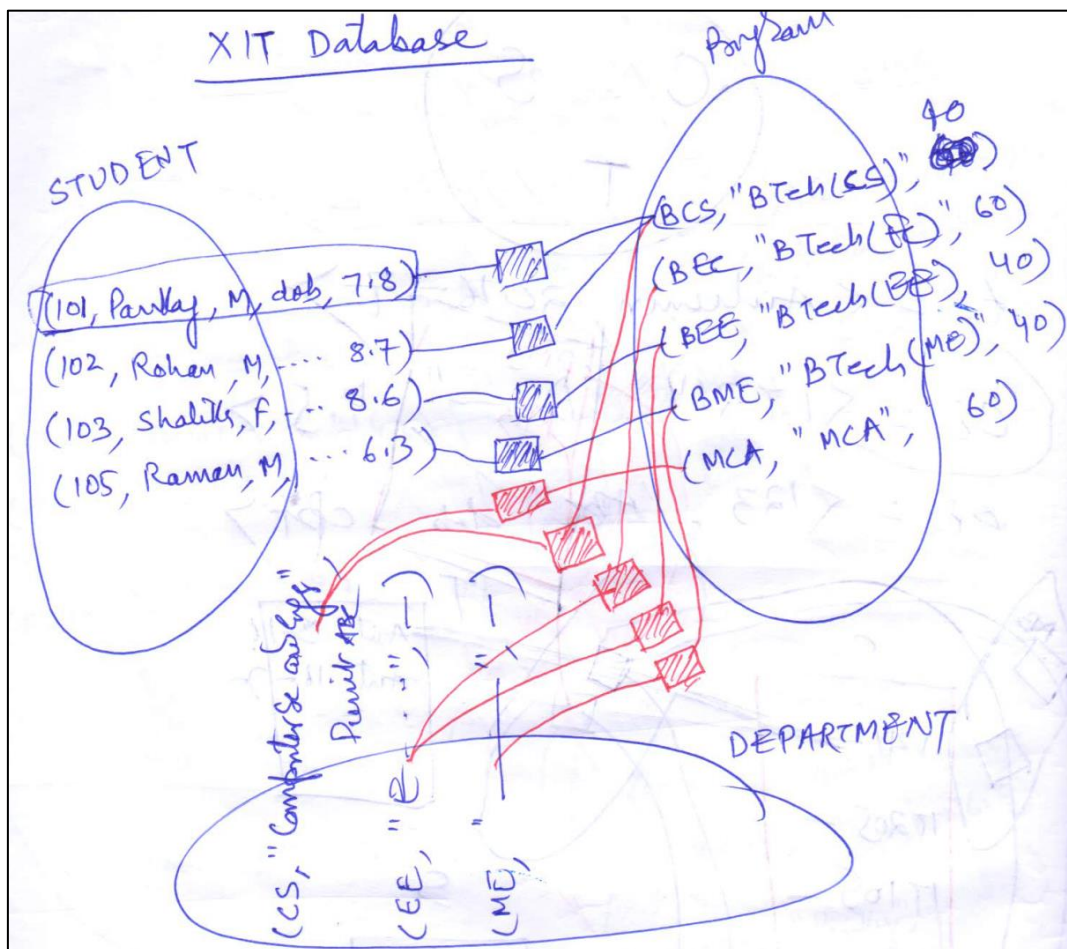 XIT Database
Program
STUDENT
(101, Pankaj, M, dob, 7.8)
(102, Rohan, M, ... 8.7)
(103, Shalik, F, ... 8.6)
(105, Raman, M, ... 6.3)
40
(BCS, "BTech(CS)", )
(BEC, "BTech(EC)", 60)
(BEE, "BTech(EE), 40)
(BME, "BTech(ME)", 40)
(MCA, "MCA", 60)
DEPARTMENT
(CS, "Computer Sc and Engg"
(EE, "E...", —)
(ME, " — ", —)